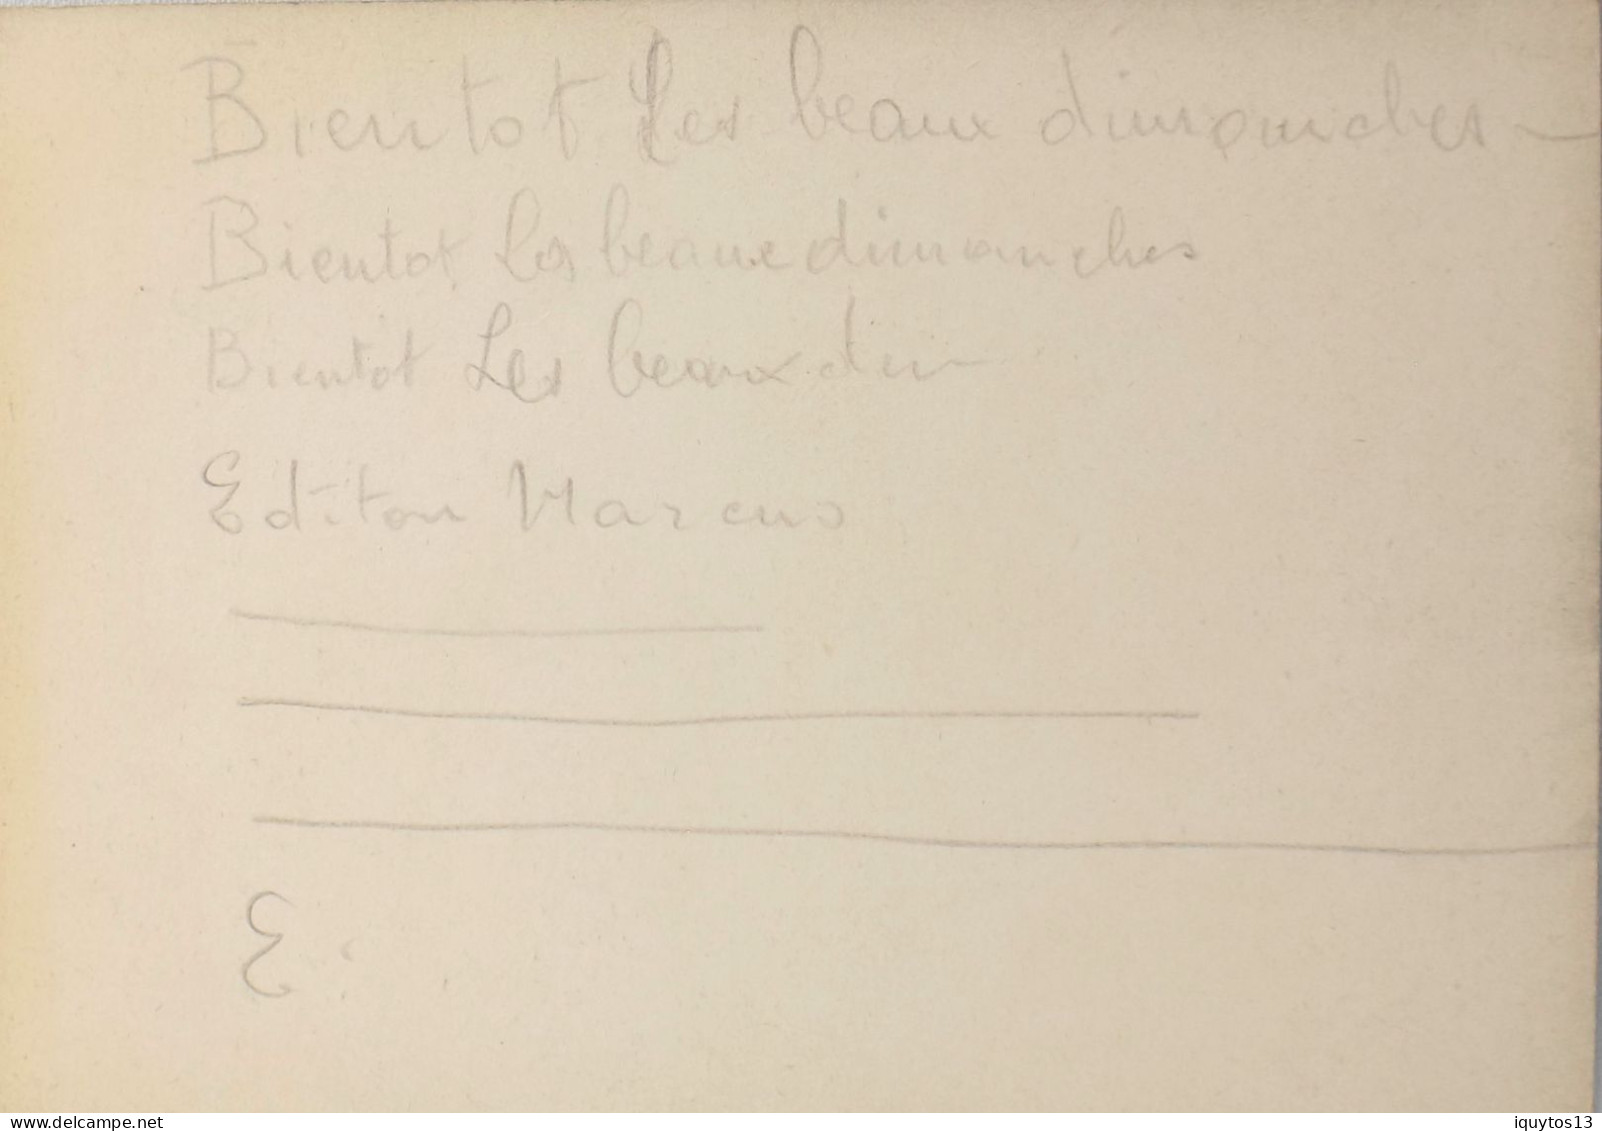 Bientot Les beaux dimanches
Bientot Les beaux dimanches
Bientot Les beaux dim
Editon Marcus
E.
delcampe.net
iquytos13